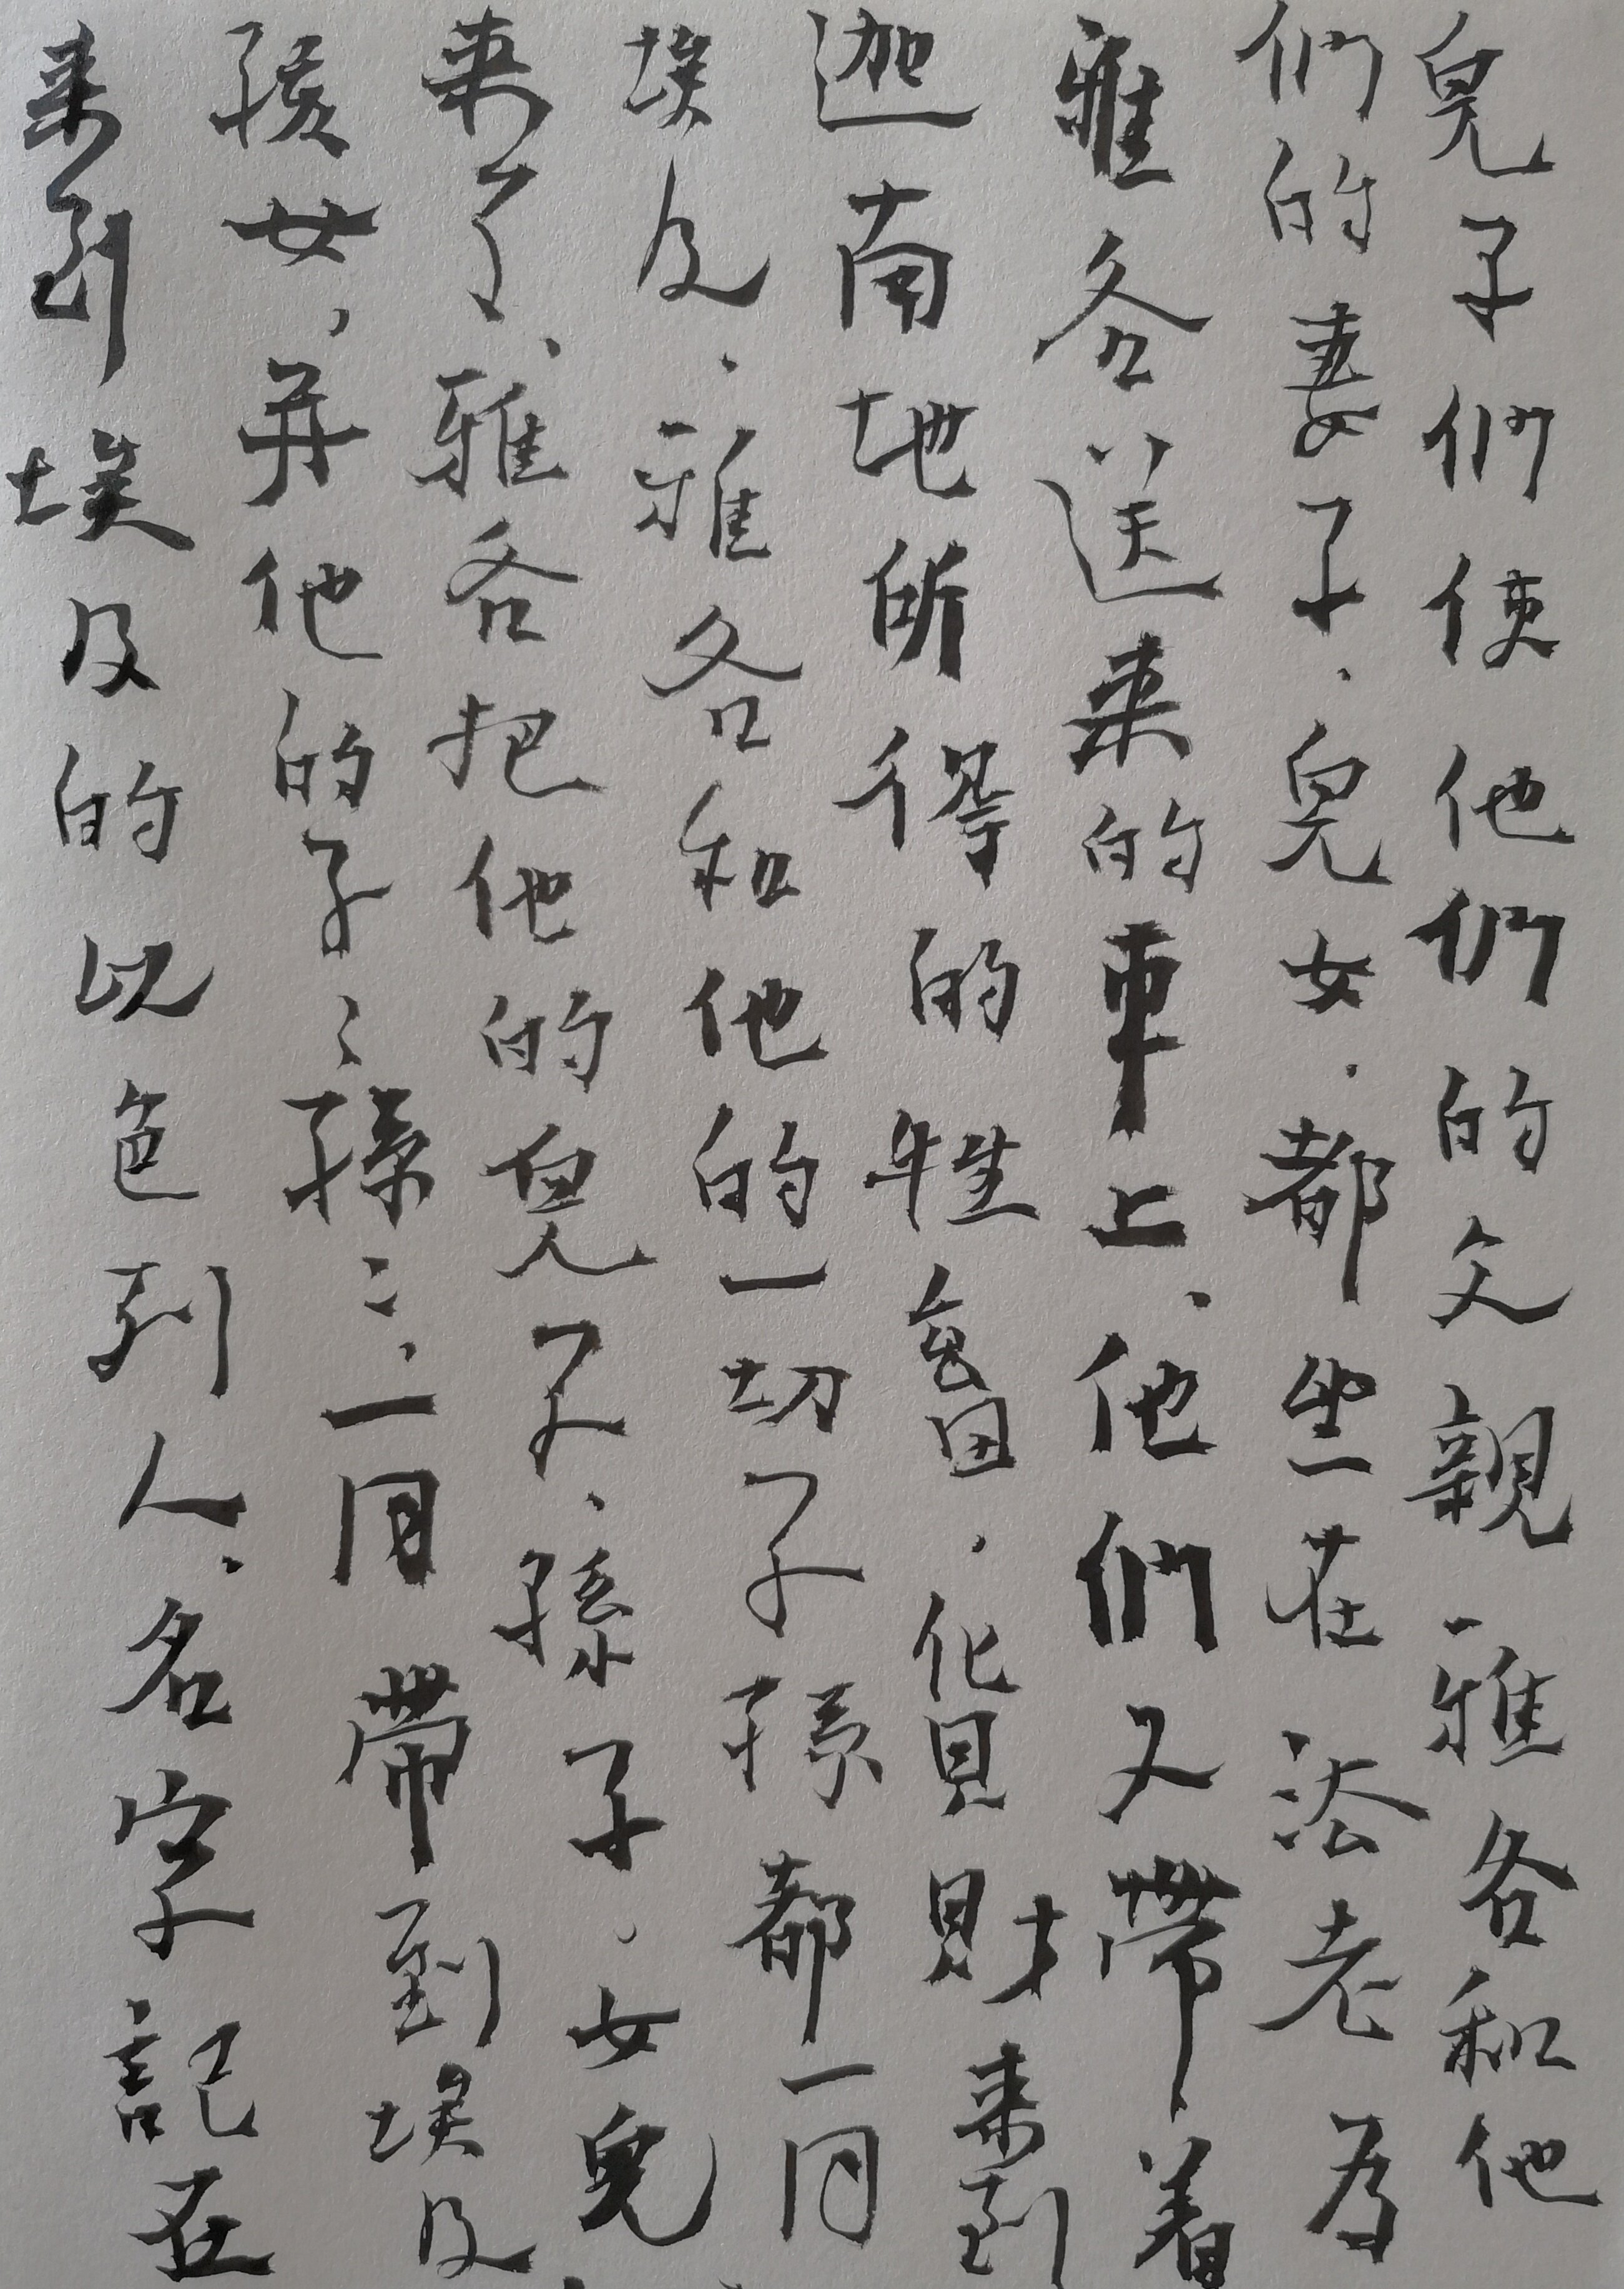 兒子們使他們的父親－雅各和他
們的妻子、兒女、都坐在法老為
雅各送来的車上、他們又帶着
迦南地所得的牲畜、化貝財来到
埃及、雅各和他的一切子孫都一同
来了、雅各把他的兒子、孫子、女兒、
孫女、并他的子ミ孫ミ、一同帶到埃及
来到埃及的以色列人、名字記在